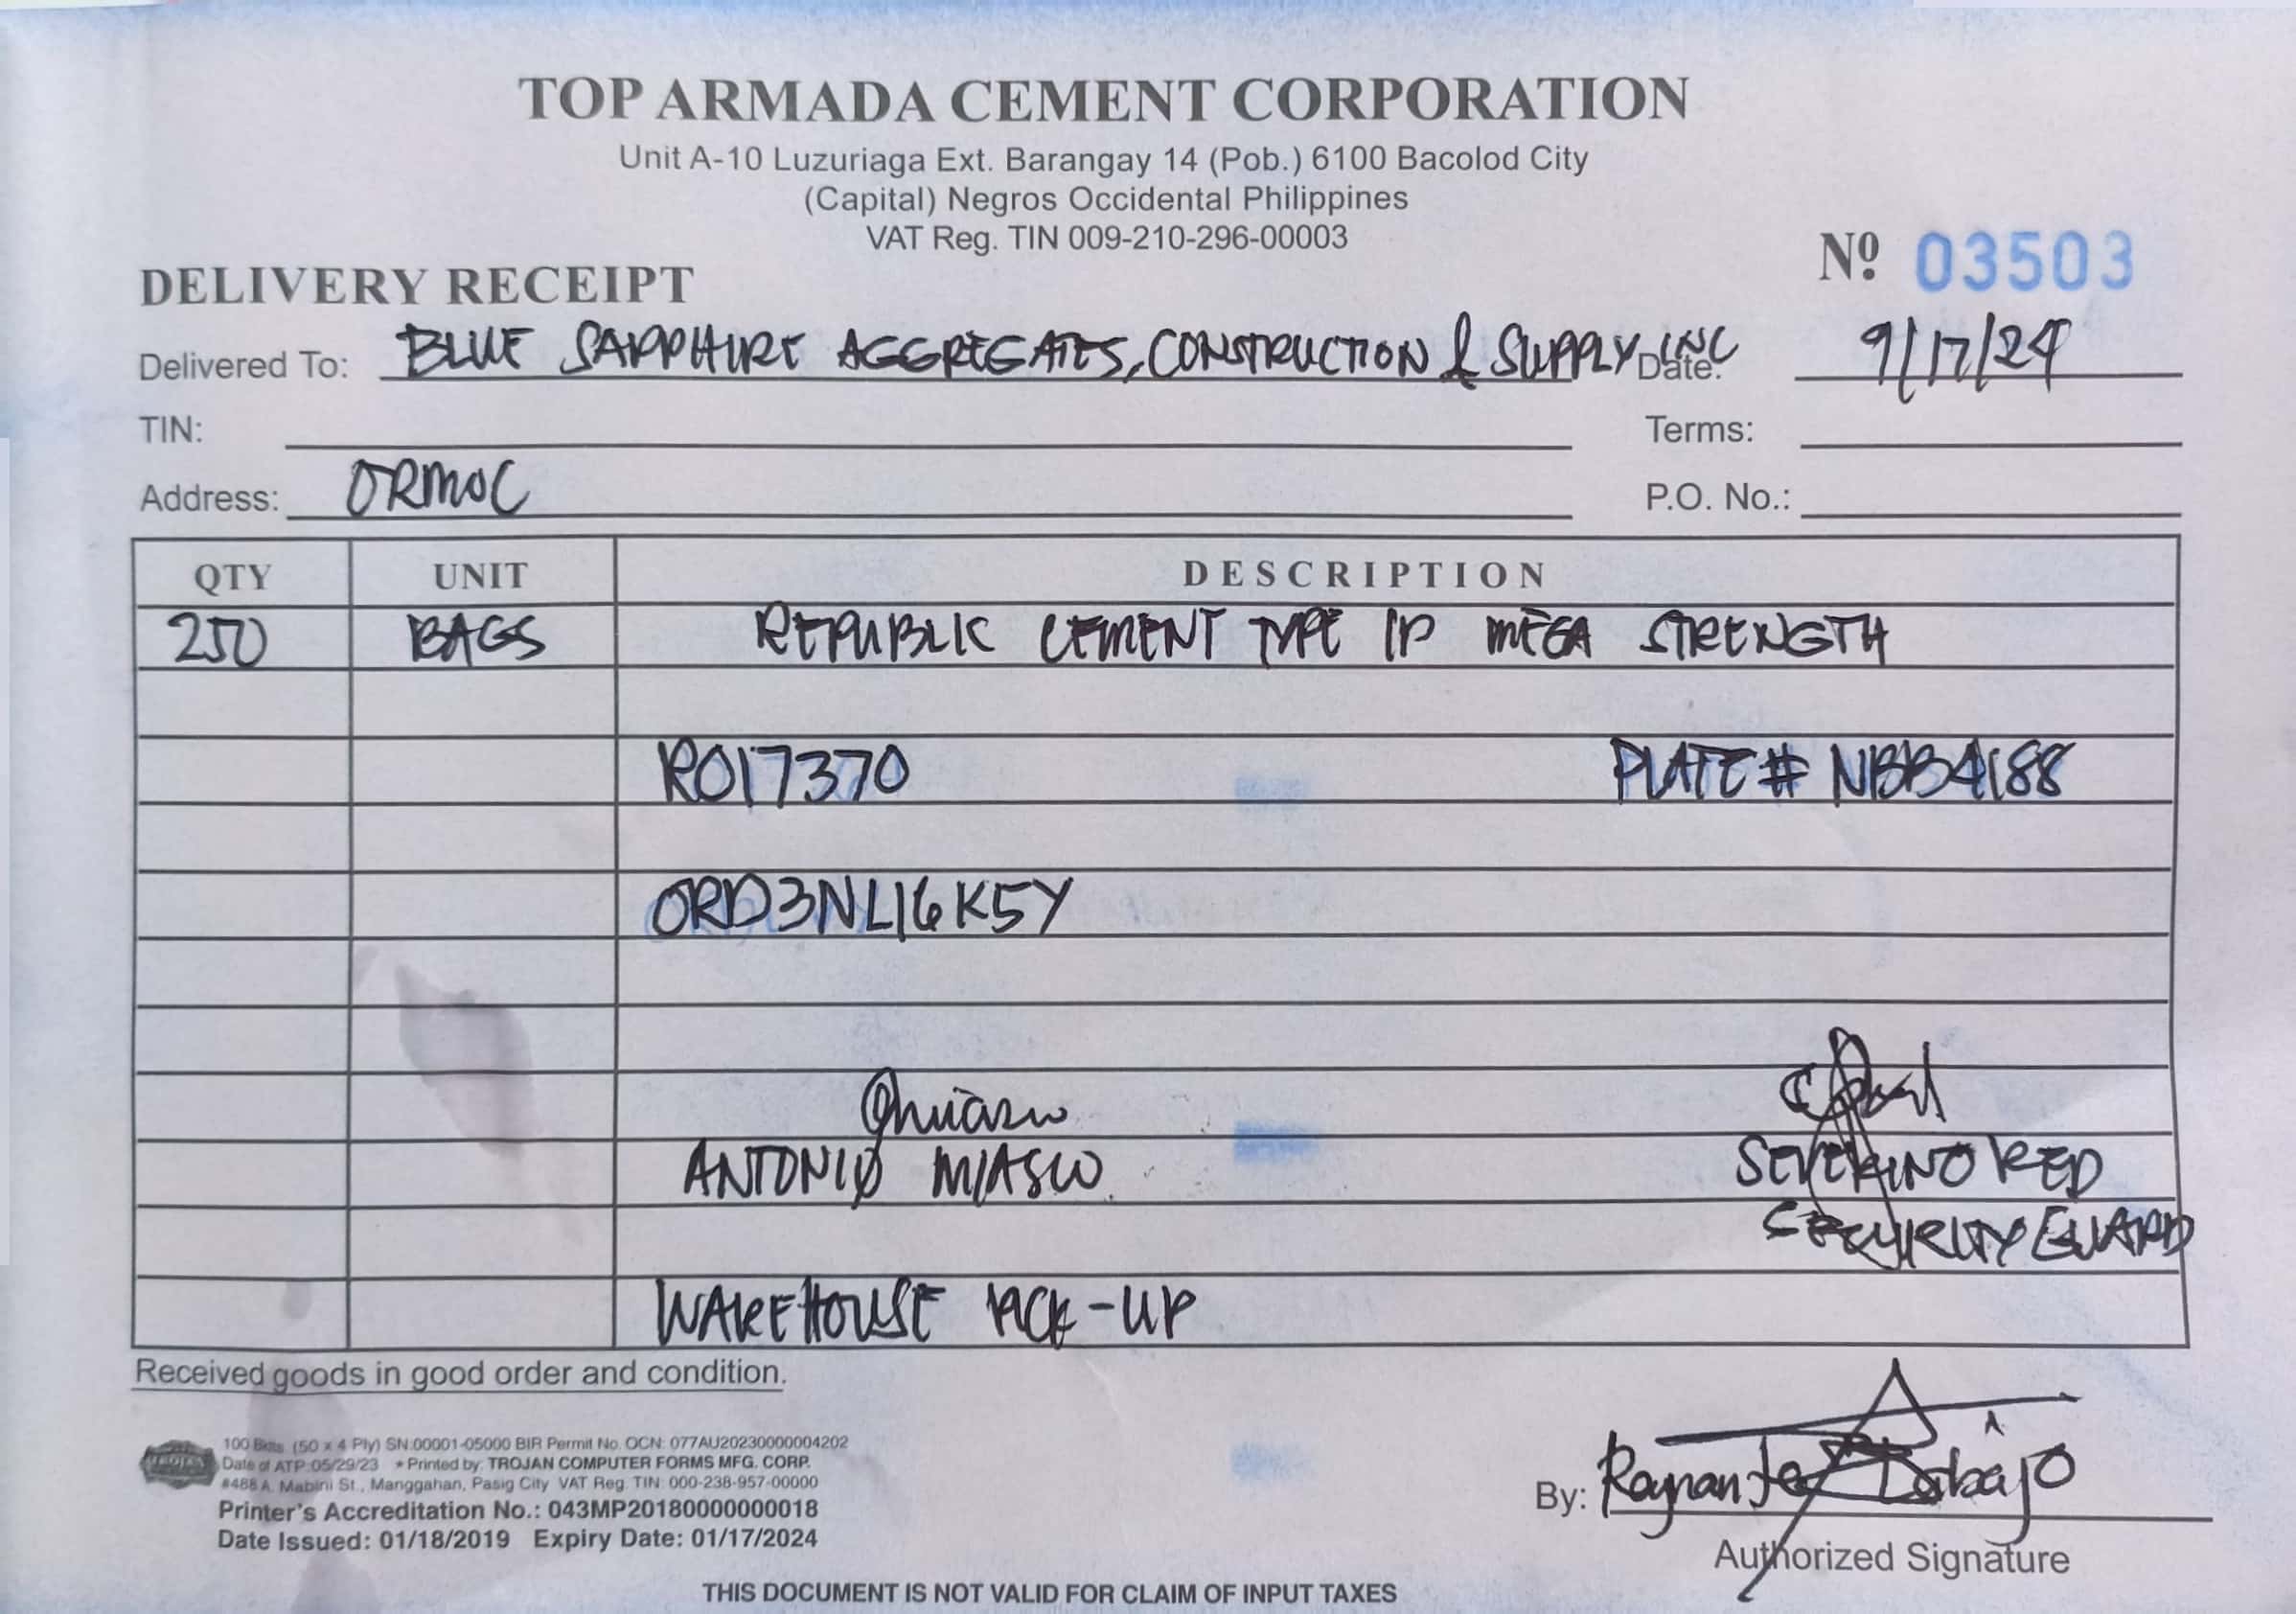 TOP ARMADA CEMENT CORPORATION
Unit A-10 Luzuriaga Ext. Barangay 14 (Pob.) 6100 Bacolod City
(Capital) Negros Occidental Philippines
VAT Reg. TIN 009-210-296-00003
Nº 03503
DELIVERY RECEIPT
Delivered To: BLUE SAPPHIRE AGGREGATES, CONSTRUCTION & SUPPLY, INC Date: 9/17/24
TIN: Terms:
Address: ORMOC P.O. No.:
QTY UNIT DESCRIPTION
250 BAGS REPUBLIC CEMENT TYPE IP MEGA STRENGTH
R017370 PLATE# NBB4188
ORD3NL16K5Y
ANTONIO MIASCO SEVERINO RED
SECURITY GUARD
WAREHOUSE PICK-UP
Received goods in good order and condition.
100 Bklts (50 x 4 Ply) SN:00001-05000 BIR Permit No. OCN: 077AU20230000004202
Date of ATP: 05/29/23 * Printed by: TROJAN COMPUTER FORMS MFG. CORP.
#488 A. Mabini St., Manggahan, Pasig City VAT Reg. TIN: 000-238-957-00000
Printer's Accreditation No.: 043MP20180000000018
Date Issued: 01/18/2019 Expiry Date: 01/17/2024
By: Raynante Labajo
Authorized Signature
THIS DOCUMENT IS NOT VALID FOR CLAIM OF INPUT TAXES